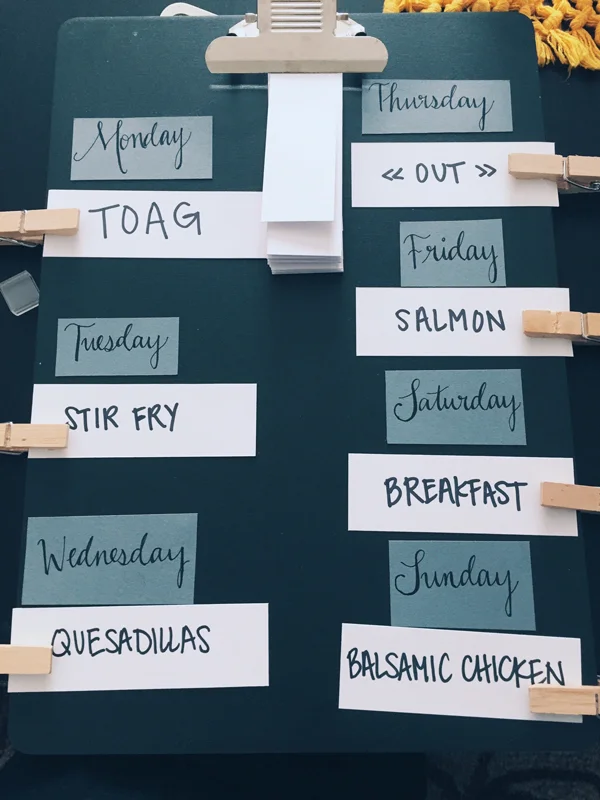 Monday
TOAG
Tuesday
STIR FRY
Wednesday
QUESADILLAS
Thursday
« OUT »
Friday
SALMON
Saturday
BREAKFAST
Sunday
BALSAMIC CHICKEN